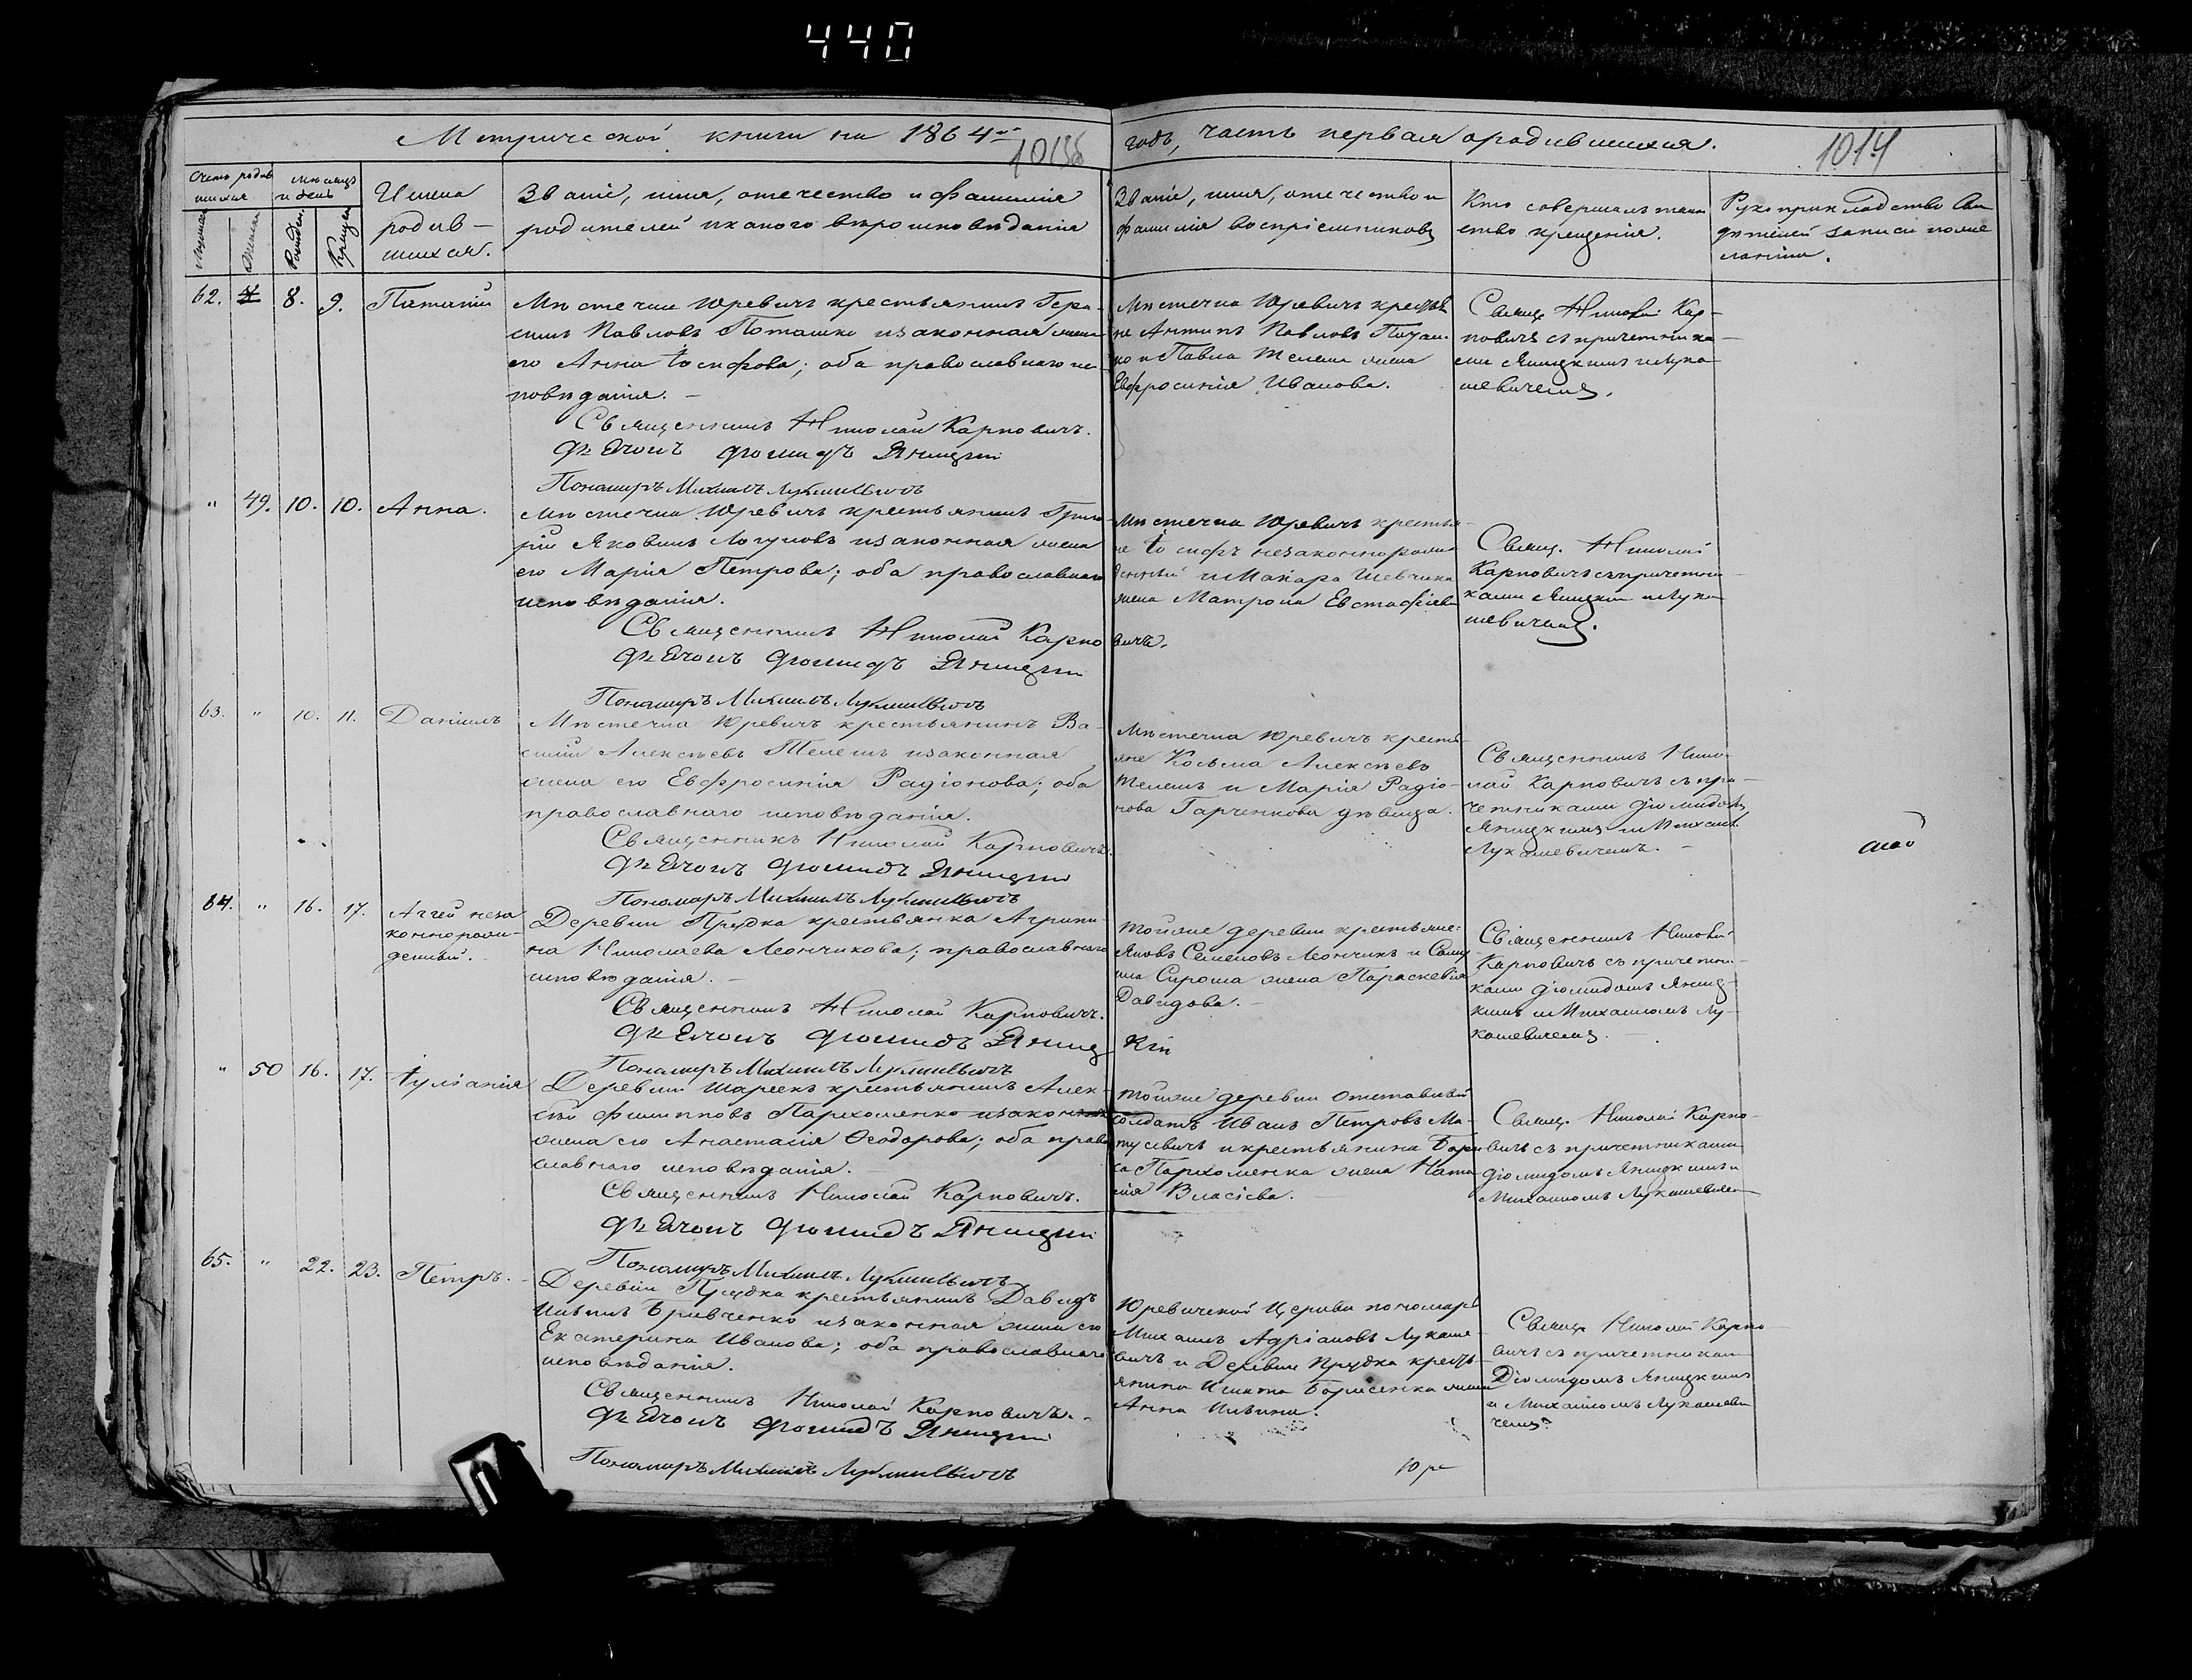 440
Метрической книги на 1864й
годъ, часть первая ородившихся.
1014
Счетъ родив
шихся
мѣсяцъ
и день
Имена
родив-
шихся.
Званіе, имя, отечество и фамилія
родителей и какого вѣроисповѣданія
Званіе, имя, отечество и
фамилія воспріемниковъ
Кто совершалъ таин
ство крещенія.
Рукоприкладство сви
дѣтелей записи по же
ланію.
62. 8. 9.
Мѣстечка Юревичъ крестьянинъ Гера-
симъ Павловъ Поташко изаконная жена
его Анна Іосифова; оба православнаго ис-
повѣданія. -
Священникъ Николай Карповичъ.
Дьячокъ Діомидъ Яницкій
Пономарь Михаилъ Лукашевичъ
Мѣстечка Юревичъ крестья
не Антипъ Павловъ Поташ-
ко и Павла Телеша жена
Евфросинія Иванова.
Свящ. Николай Кар-
повичъ съ причетника-
ми Яницкимъ и Лука-
шевичемъ.
" 49. 10. 10. Анна.
Мѣстечка Юревичъ крестьянинъ Григо-
рій Яковлевъ изаконная жена
его Марія Петрова; оба православнаго
исповѣданія.
Священникъ Николай Карпо
вичъ.
Дьячокъ Діомидъ Яницкій
Пономарь Михаилъ Лукашевичъ
Мѣстечка Юревичъ крестья-
не Іосифъ незаконнорож-
денный и Макара Шевчика
жена Матрона Евстафіева
Свящ. Николай
Карповичъ съ причетни-
ками Яницкимъ и Лука-
шевичемъ.
63. " 10. 11. Даніилъ
Мѣстечка Юревичъ крестьянинъ Ва-
силій Алексѣевъ Телешъ изаконная
жена его Евфросинія Радіонова; оба
православнаго исповѣданія.
Священникъ Николай Карповичъ.
Дьячокъ Діомидъ Яницкій
Пономарь Михаилъ Лукашевичъ
Мѣстечка Юревичъ кресть-
яне Косьма Алексѣевъ
Телешъ и Марія Радіо-
нова Гарченкова дѣвица.
Священникъ Нико-
лай Карповичъ съ при-
четниками Діомидомъ
Яницкимъ и Михаил.
Лукашевичемъ. -
64. " 16. 17. Аггей неза
коннорож-
денный.
Деревни Прудка крестьянка Агрипи-
на Николаева Леончикова; православнаго
исповѣданія. -
Священникъ Николай Карповичъ.
Дьячокъ Діомидъ Яниц
кій
Пономарь Михаилъ Лукашевичъ
Тойже деревни крестьяне:
Яковъ Семеновъ Леончикъ и
Сироша жена Параскевія
Давидова. -
Священникъ Николай
Карповичъ съ причетни-
ками Діомидомъ Яниц-
кимъ и Михаиломъ Лу-
кашевичемъ.
" 50 16. 17. Іуліанія
Деревни Шареекъ крестьянинъ Алек-
сѣй Филипповъ Пархоменко изаконная
жена его Анастасія Ѳеодорова; оба право
славнаго исповѣданія.
Священникъ Николай Карповичъ.
Дьячокъ Діомидъ Яницкій
Пономарь Михаилъ Лукашевичъ
Тойже деревни отставной
солдатъ Иванъ Петровъ Ма-
тусевичъ и крестьянина Бори
са Пархоменка жена Ната-
лія Власіева.
Свящ. Николай Карпо-
вичъ съ причетниками
Діомидомъ Яницкимъ и
Михаиломъ Лукашевичем
65. " 22. 23. Петръ.
Деревни Прудка крестьянинъ Давидъ
Ильинъ Бривченко изаконная жена его
Екатерина Иванова; оба православнаго
исповѣданія.
Священникъ Николай Карповичъ. -
Дьячокъ Діомидъ Яницкій
Пономарь Михаилъ Лукашевичъ
Юревичской Церкви пономарь
Михаилъ Адріановъ Лукаше-
вичъ и Деревни Прудка кресть-
янина Игната Борисенка жена
Анна Ильина.
Свящ. Николай Карпо-
вичъ съ причетникам
Діомидомъ Яницкимъ
и Михаиломъ Лукашеви
чемъ.